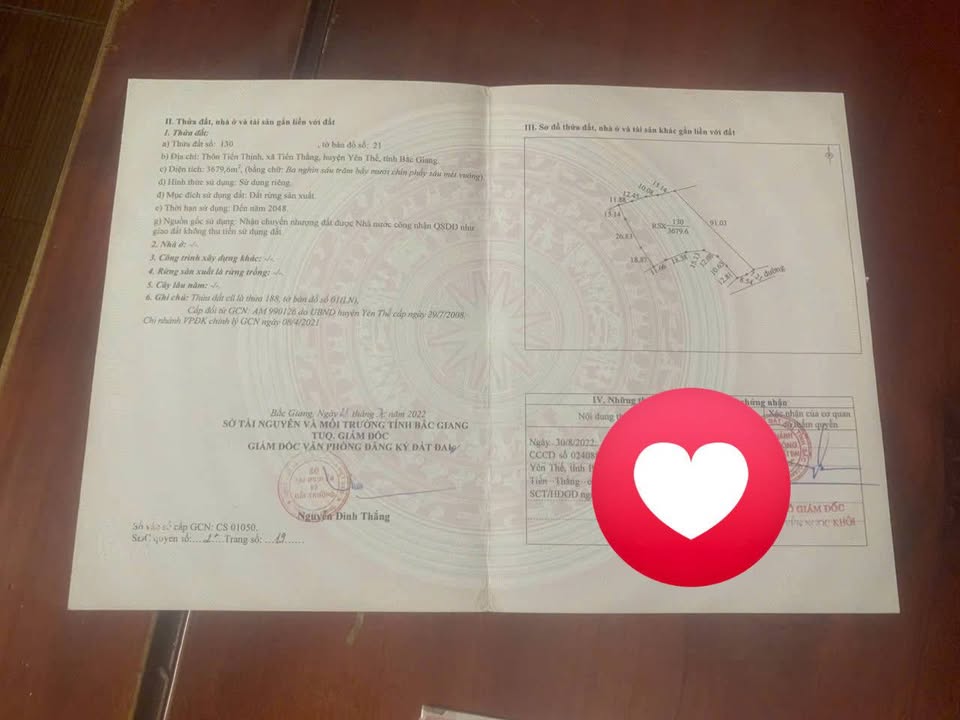 II. Thửa đất, nhà ở và tài sản gắn liền với đất
1. Thửa đất:
a) Thửa đất số: 130 , tờ bản đồ số: 21
b) Địa chỉ: Thôn Tiến Thịnh, xã Tiến Thắng, huyện Yên Thế, tỉnh Bắc Giang.
c) Diện tích: 3679,6m², (bằng chữ: Ba nghìn sáu trăm bảy mươi chín phẩy sáu mét vuông),
d) Hình thức sử dụng: Sử dụng riêng.
đ) Mục đích sử dụng đất: Đất rừng sản xuất.
e) Thời hạn sử dụng: Đến năm 2048.
g) Nguồn gốc sử dụng: Nhận chuyển nhượng đất được Nhà nước công nhận QSDĐ như
giao đất không thu tiền sử dụng đất.
2. Nhà ở: -/-.
3. Công trình xây dựng khác: -/-.
4. Rừng sản xuất là rừng trồng: -/-.
5. Cây lâu năm: -/-.
6. Ghi chú: Thửa đất cũ là thửa 188, tờ bản đồ số 01(LN),
Cấp đổi từ GCN: AM 990128 do UBND huyện Yên Thế cấp ngày 29/7/2008.
Chi nhánh VPĐK chỉnh lý GCN ngày 08/4/2021
Bắc Giang, Ngày tháng năm 2022
SỞ TÀI NGUYÊN VÀ MÔI TRƯỜNG TỈNH BẮC GIANG
TUQ. GIÁM ĐỐC
GIÁM ĐỐC VĂN PHÒNG ĐĂNG KÝ ĐẤT ĐAI
Nguyễn Đình Thắng
Số vào sổ cấp GCN: CS 01050,
SĐC quyển số: Trang số: 19
III. Sơ đồ thửa đất, nhà ở và tài sản khác gắn liền với đất
15.14
10.08
12.45
11.88
15.14
RSX 130
3679.6
91.03
26.83
18.87
đường
8.54
IV. Những th chứng nhận
Nội dung th Xác nhận của cơ quan
có thẩm quyền
Ngày 30/8/2022
CCCD số 02408
Yên Thế, tỉnh B
Tiến Thắng
SCT/HĐGD ng
GIÁM ĐỐC
NGỌC KHÔI